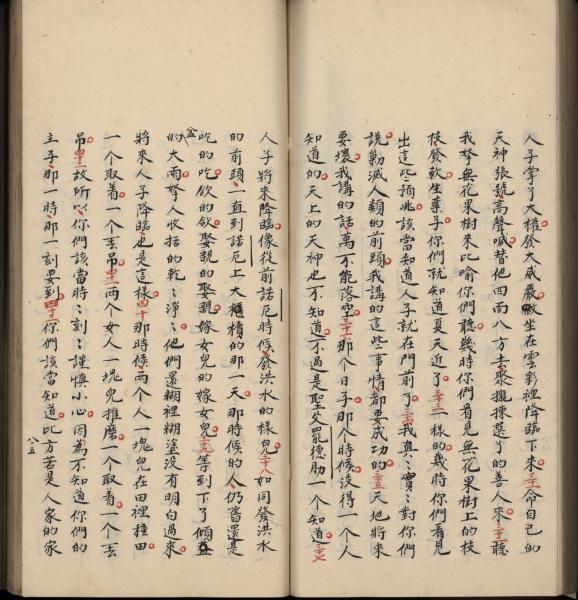 人子掌了大權發大威嚴坐在雲彩裡降臨下來三十命自己的
天神張號高聲喊替他四面八方去聚攏揀選了的善人來三十一聽
我拏無花果樹來比喻你們聽幾時你們看見無花果樹上的枝
枝發軟生葉子你們就知道夏天近了三十二一樣的幾時你們看見
出這些預兆該當知道人子就在門前了三十三我真々實々對你們
說勦滅人類的前頭我講的這些事情都要成功的三十四天地將來
要壞我講的話萬不能落空三十五那个日子那个時候沒得一个人
知道的天上的天神也不知道不過是聖父罷德肋一个知道三十六
人子將來降臨像從前諾厄時候發洪水的樣兒三十七如同發洪水
的前頭一直到諾厄上大櫃櫝的那一天那時候的人仍舊還是
吃的吃飲的飲娶親的娶親嫁女兒的嫁女兒三十八等到下了傾盆
的大雨拏人收拾的乾々淨々他們還糊裡糊塗沒有明白過來
將來人子降臨也是這樣三十九那時候兩个人一塊兒在田裡種田
一个取着一个丟吊四十兩个女人一塊兒推磨一个取着一个丟
吊四十一故所以你們該當時々刻々謹慎小心因為不知道你們的
主子那一時那一刻要到四十二你們該當知道比方若是人家的家
八五